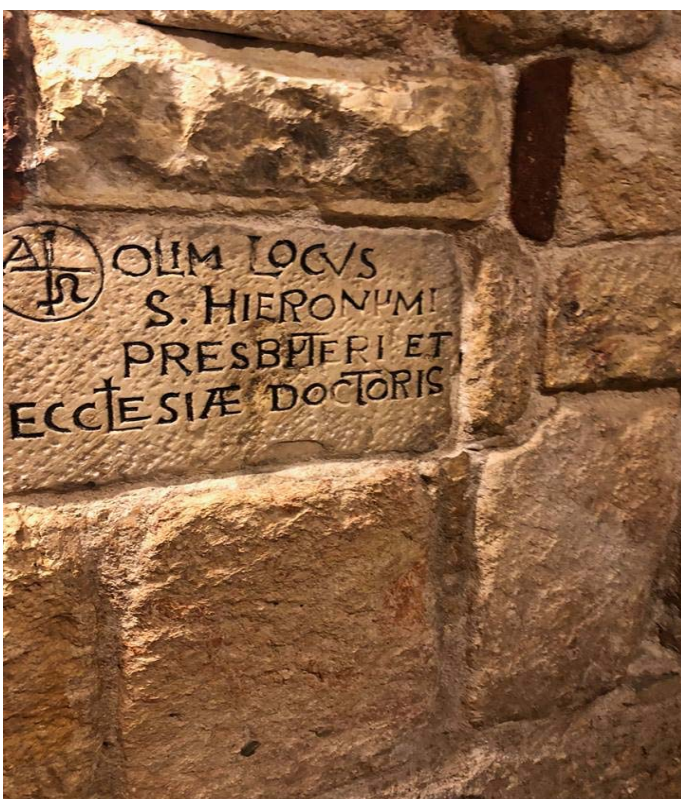 A Ω OLIM LOCVS
S. HIERONYMI
PRESBITERI ET
ECCLESIÆ DOCTORIS